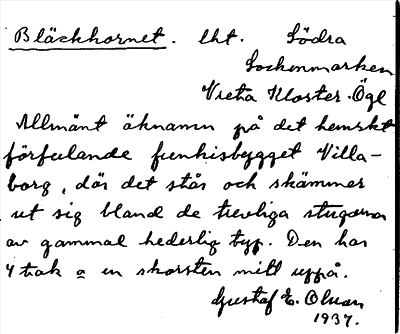 Bläckhornet. lht. Södra
Sockenmarken
Vreta Kloster. Ögl
Allmänt öknamn på det hemskt
förfulande funkisbygget Villa-
borg, där det står och skämmer
ut sig bland de trevliga stugorna
av gammal hederlig typ. Den har
4 tak o en skorsten mitt uppå.
Gustaf E. Olsson
1937.